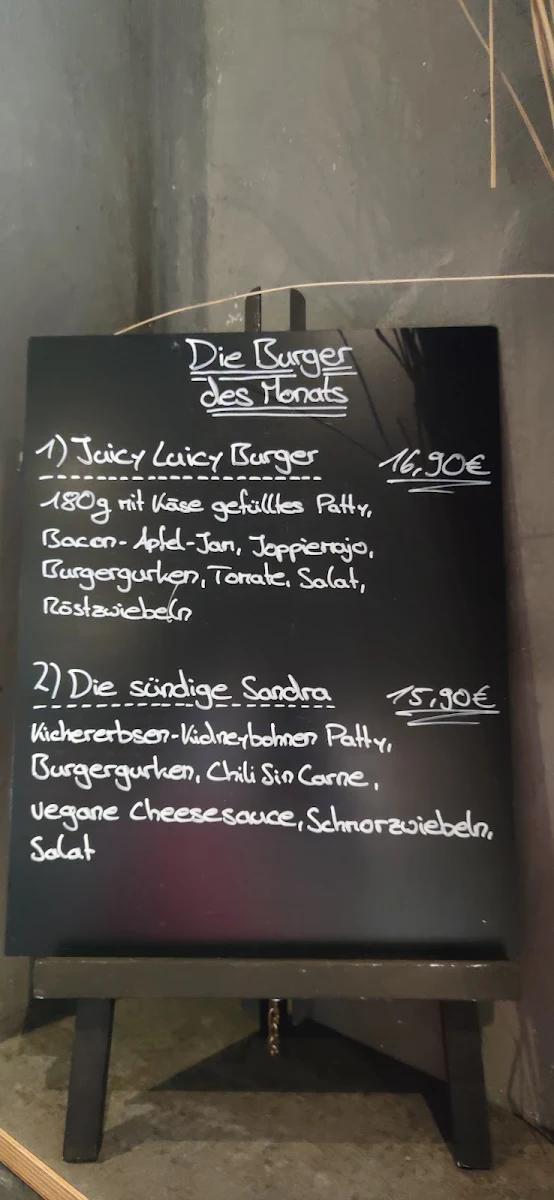 Die Burger
des Monats
1) Juicy Lucy Burger 16,90€
180g mit Käse gefülltes Patty,
Bacon-Apfel-Jam, Joppiemajo,
Burgergurken, Tomate, Salat,
Röstzwiebeln
2) Die sündige Sandra 15,90€
Kichererbsen-Kidneybohnen Patty,
Burgergurken, Chili Sin Carne,
vegane Cheesesauce, Schmorzwiebeln,
Salat